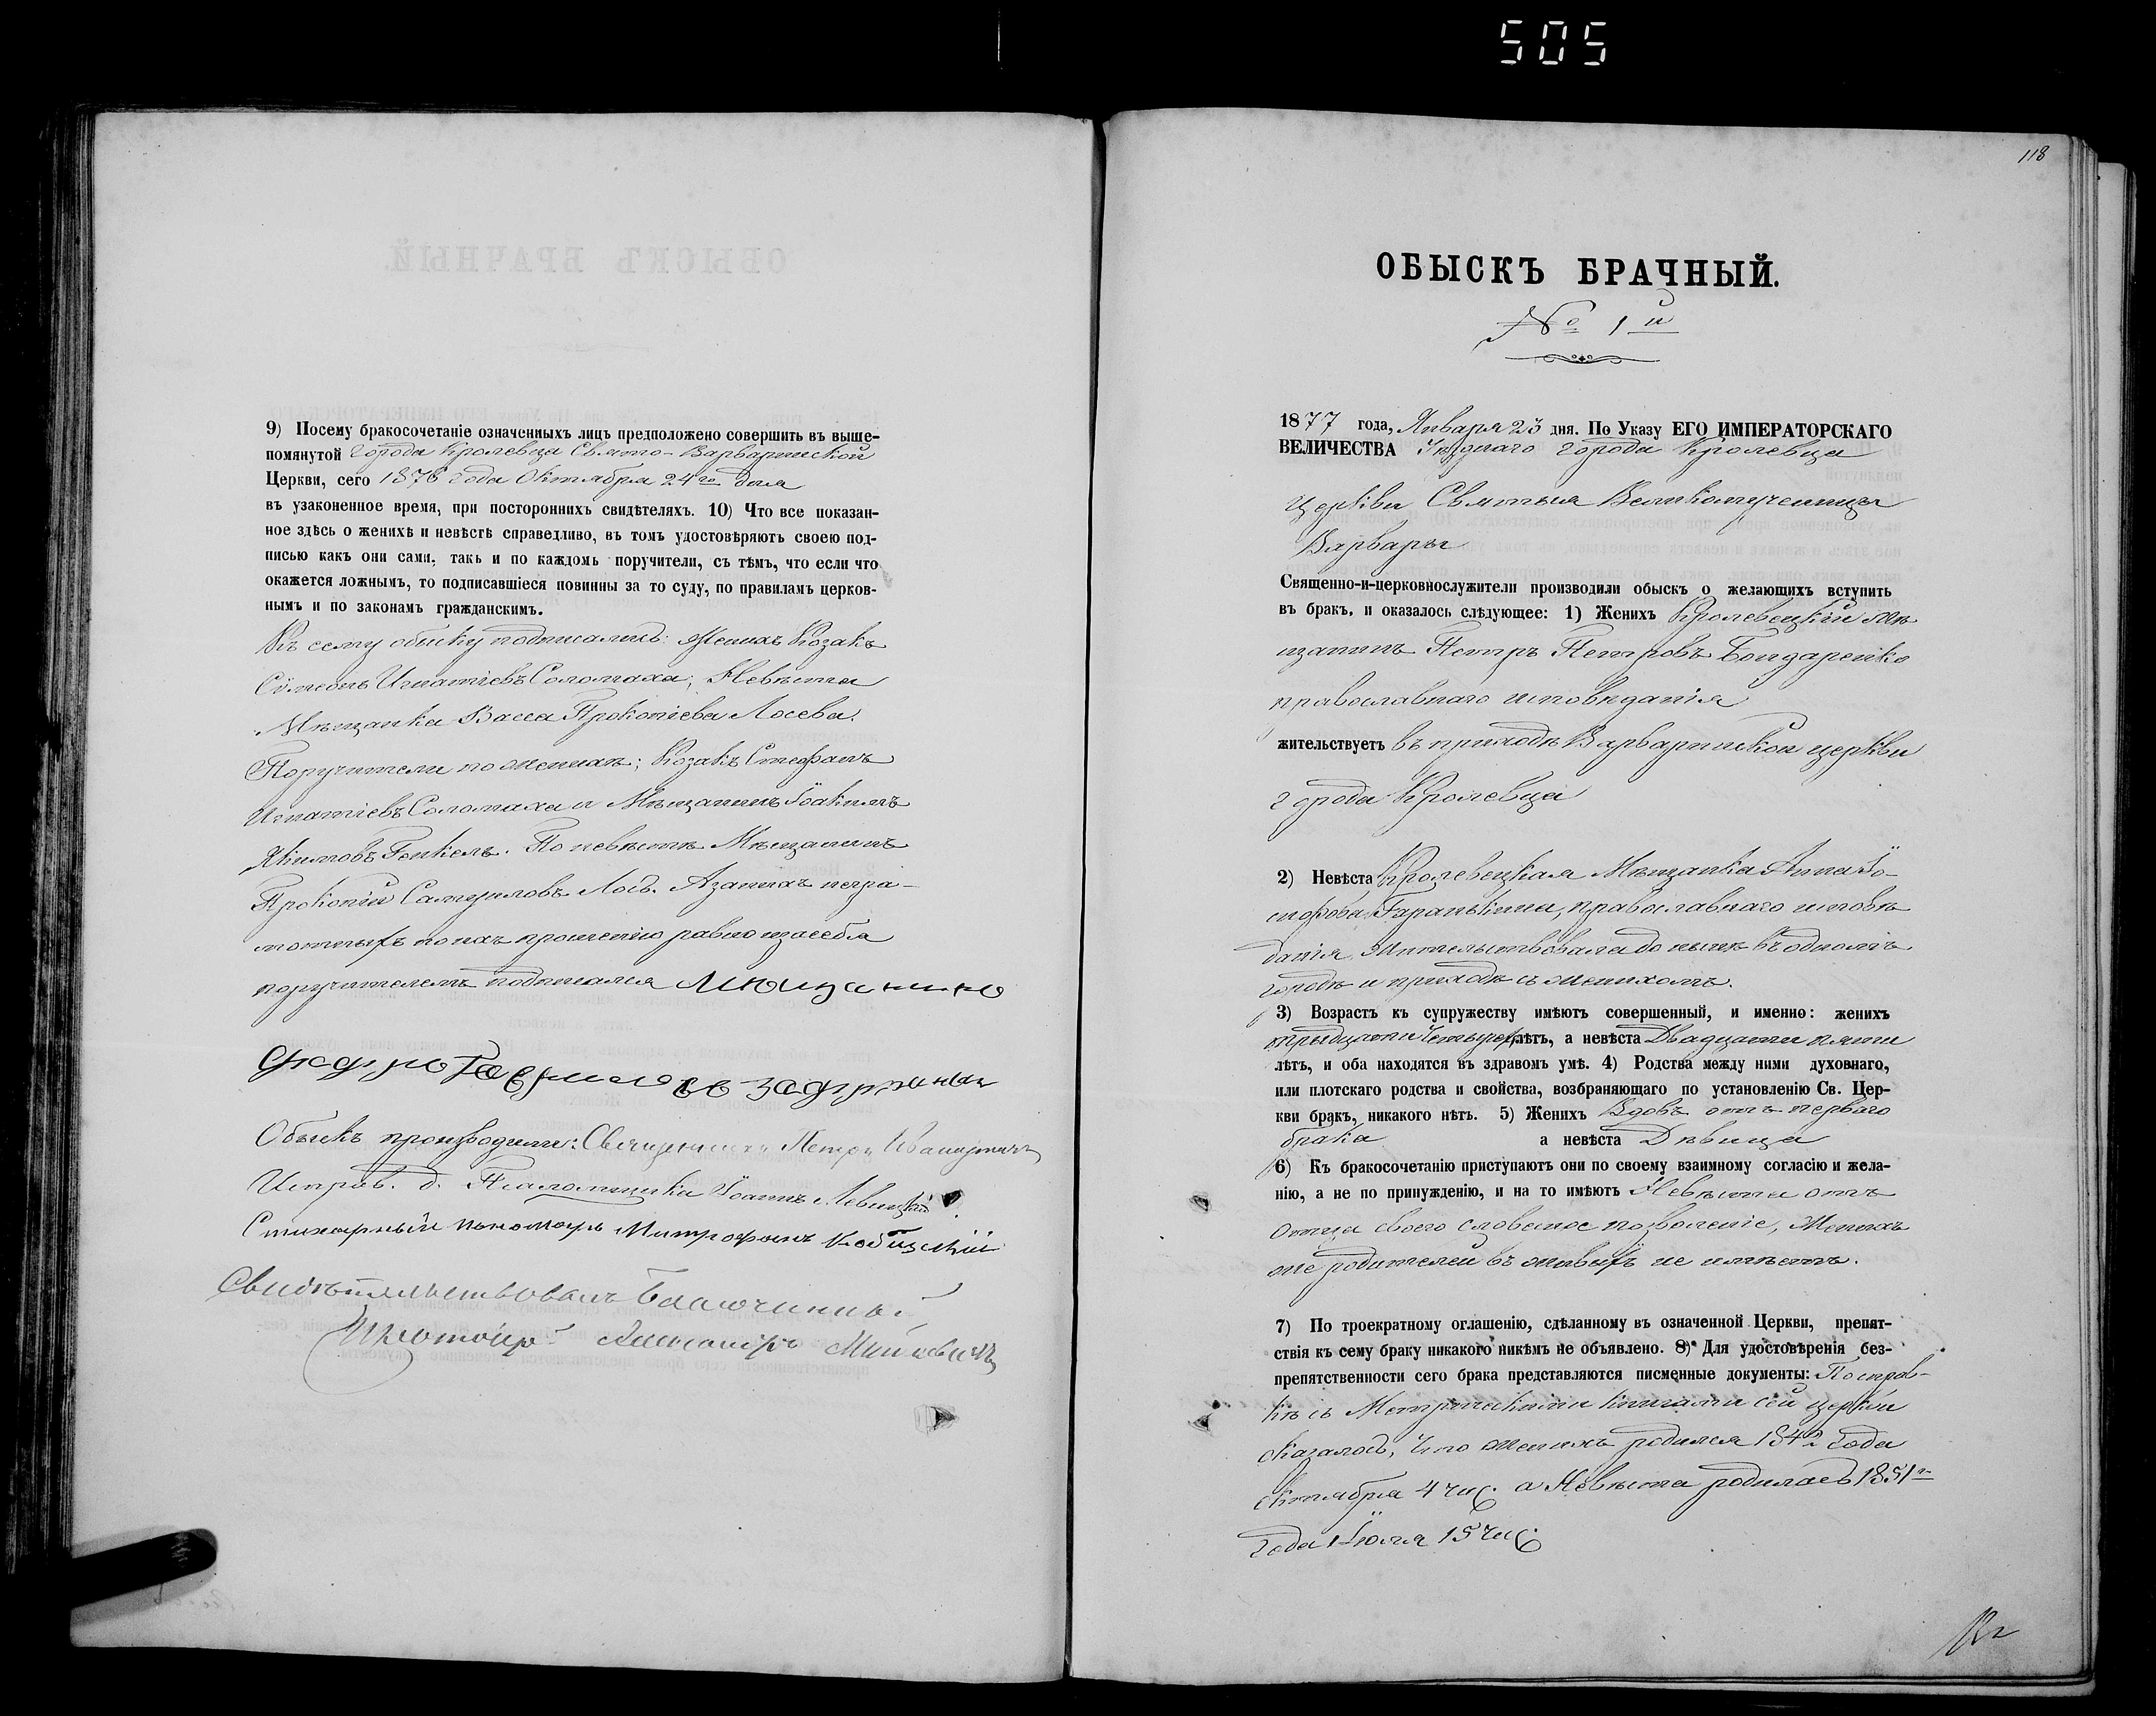 505
9) Посему бракосочетаніе означенныхъ лицъ предположено совершить въ выше-
помянутой Города Кролевца Свято-Варваринской
Церкви, сего 1876 года Октября 24го дня
въ узаконенное время, при постороннихъ свидѣтеляхъ. 10) Что все показан-
ное здѣсь о женихѣ и невѣстѣ справедливо, въ томъ удостовѣряютъ своею под-
писью какъ они сами, такъ и по каждомъ поручители, съ тѣмъ, что если что
окажется ложнымъ, то подписавшіеся повинны за то суду, по правиламъ церков-
нымъ и по законамъ гражданскимъ.
Къ сему обыску подписались: Женихъ Козакъ
Сѵмеонъ Игнатіевъ Соломаха, Невѣста
Мѣщанка Васса Прокопіева Лосева.
Поручители по женихѣ; Козакъ Стефанъ
Игнатіевъ Соломаха и Мѣщанинъ Іоакимъ
Якимовъ Генкель. По невѣстѣ Мѣщанинъ
Прокопій Самуиловъ Лось. А за нихъ негра-
мотныхъ по ихъ прошенію равно и за себя
поручителемъ подписался
Обыскъ производили: Священникъ Петръ
Исправ. д. Псаломщика Іоаннъ Левицкій
Стихарный пономарь Митрофанъ
Свидѣтельствовалъ Благочинный
118
ОБЫСКЪ БРАЧНЫЙ.
№ 1й
1877 года, Января 23 дня. По Указу ЕГО ИМПЕРАТОРСКАГО
ВЕЛИЧЕСТВА Уѣзднаго города Кролевца
Церкви Святыя Великомученицы
Варвары
Священно-и-церковнослужители производили обыскъ о желающихъ вступить
въ бракъ, и оказалось слѣдующее: 1) Женихъ Кролевецкій Мѣ
щанинъ Петръ Петровъ Бондаренко
православнаго исповѣданія
жительствуетъ въ приходѣ Варваринской церкви
города Кролевца
2) Невѣста Кролевецкая Мѣщанка Анна Іо-
сифова Гаранькина, православнаго исповѣ
данія жительствовала до нынѣ въ одномъ
городѣ и приходѣ съ женихомъ.
3) Возрастъ къ супружеству имѣютъ совершенный, и именно: женихъ
тридцати четырехъ лѣтъ, а невѣста Двадцати пяти
лѣтъ, и оба находятся въ здравомъ умѣ. 4) Родства между ними духовнаго,
или плотскаго родства и свойства, возбраняющаго по установленію Св. Цер-
кви бракъ, никакого нѣтъ. 5) Женихъ Вдовъ отъ перваго
брака а невѣста Дѣвица
6) Къ бракосочетанію приступаютъ они по своему взаимному согласію и жела-
нію, а не по принужденію, и на то имѣютъ Невѣста отъ
отца своего словесное позволеніе, Женихъ
же родителей въ живыхъ не имѣетъ.
7) По троекратному оглашенію, сдѣланному въ означенной Церкви, препят-
ствія къ сему браку никакого никѣмъ не объявлено. 8) Для удостовѣренія без-
препятственности сего брака представляются писменные документы: По справ-
кѣ съ Метрическими книгами сей церкви
оказалось, что женихъ родился 1842 года
Октября 4 чис. а Невѣста родилась 1851го
года Іюля 15 чис.